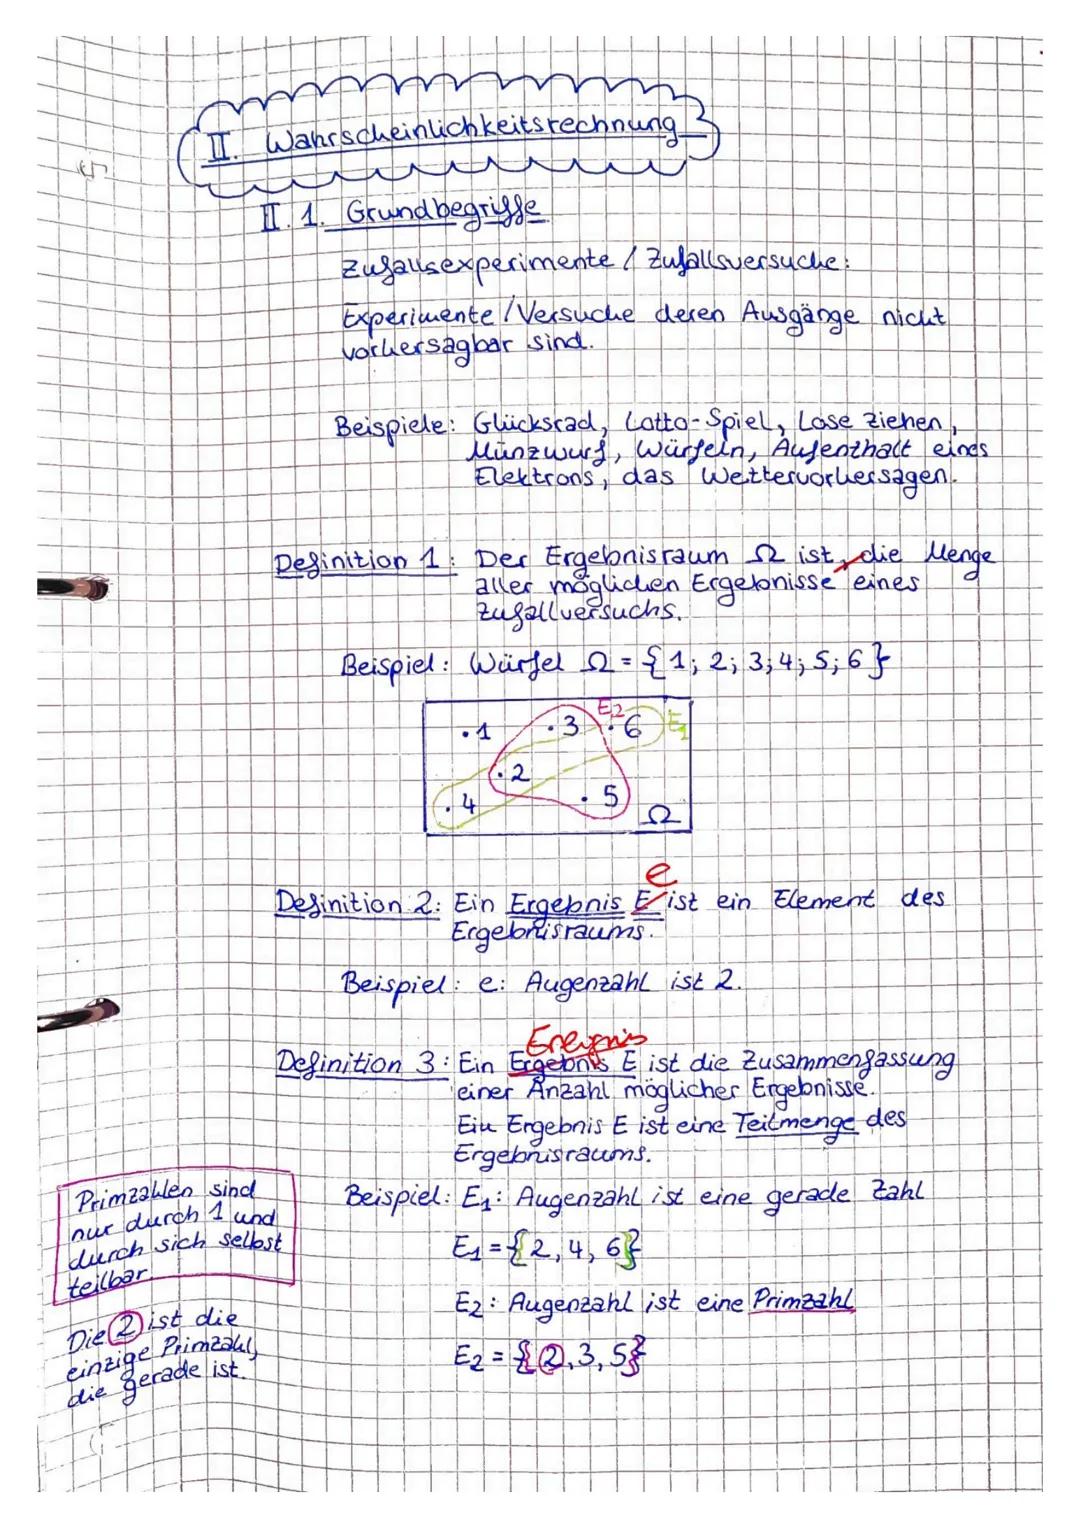 II. Wahrscheinlichkeitsrechnung
II. 1. Grundbegriffe
Zufallsexperimente / Zufallsversuche:
Experimente / Versuche deren Ausgänge nicht
vorhersagbar sind.
Beispiele: Glücksrad, Lotto-Spiel, Lose ziehen,
Münzwurf, Würfeln, Aufenthalt eines
Elektrons, das Wettervorhersagen.
Definition 1: Der Ergebnisraum Ω ist die Menge
aller möglichen Ergebnisse eines
Zufallversuchs.
Beispiel: Würfel Ω = {1; 2; 3; 4; 5; 6}
E2
.1 .3 .6 E1
.2
.4 .5
Ω
e
Definition 2: Ein Ergebnis E ist ein Element des
Ergebnisraums.
Beispiel: e: Augenzahl ist 2.
Ereignis
Definition 3: Ein Ergebnis E ist die Zusammenfassung
einer Anzahl möglicher Ergebnisse.
Ein Ergebnis E ist eine Teilmenge des
Ergebnisraums.
Primzahlen sind
nur durch 1 und
durch sich selbst
teilbar.
Die 2 ist die
einzige Primzahl,
die gerade ist.
Beispiel: E1: Augenzahl ist eine gerade Zahl
E1 = {2, 4, 6}
E2: Augenzahl ist eine Primzahl
E2 = {2, 3, 5}